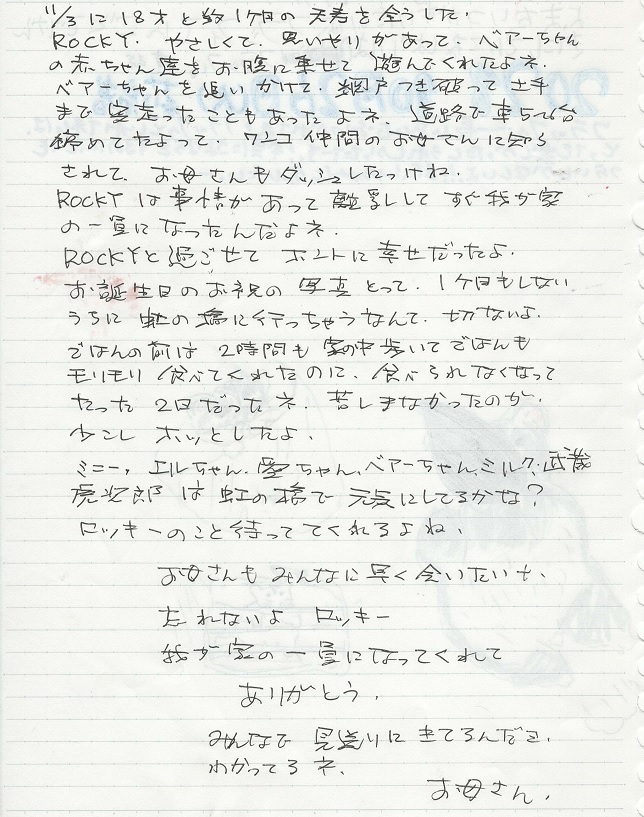 11/3に18才と約1ケ月の天寿を全うした.
ROCKY. やさしくて. 思いやりがあって. ベアーちゃん
の赤ちゃん達をお腹に乗せて遊んでくれたよネ.
ベアーちゃんを追いかけて. 網戸つき破って土手
まで突走ったこともあったよネ. 道路で車5〜6台
綿めてたよって. ワンコ仲間のお母さんに知ら
されて. お母さんもダッシュしたっけね.
ROCKYは事情があって離乳してすぐ我が家
の一員になったんだよネ.
ROCKYと過ごせてホントに幸せだったよ.
お誕生日のお祝の写真とって. 1ケ月もしない
うちに虹の橋に行っちゃうなんて. 切ないよ.
ごはんの前は2時間も家の中歩いてごはんも
モリモリ食べてくれたのに. 食べられなくなって
たった2日だったネ. 苦しまなかったのが.
少こしホッとしたよ.
ミニー, エルちゃん. 愛ちゃん, ベアーちゃん, ミルク, 武蔵
虎次郎は虹の橋で元気にしてるかな?
ロッキーのこと待っててくれるよね.
お母さんもみんなに早く会いたいナ.
忘れないよ ロッキー
我が家の一員になってくれて
ありがとう.
みんなで見送りにきてるんだヨ.
わかってるネ.
お母さん.